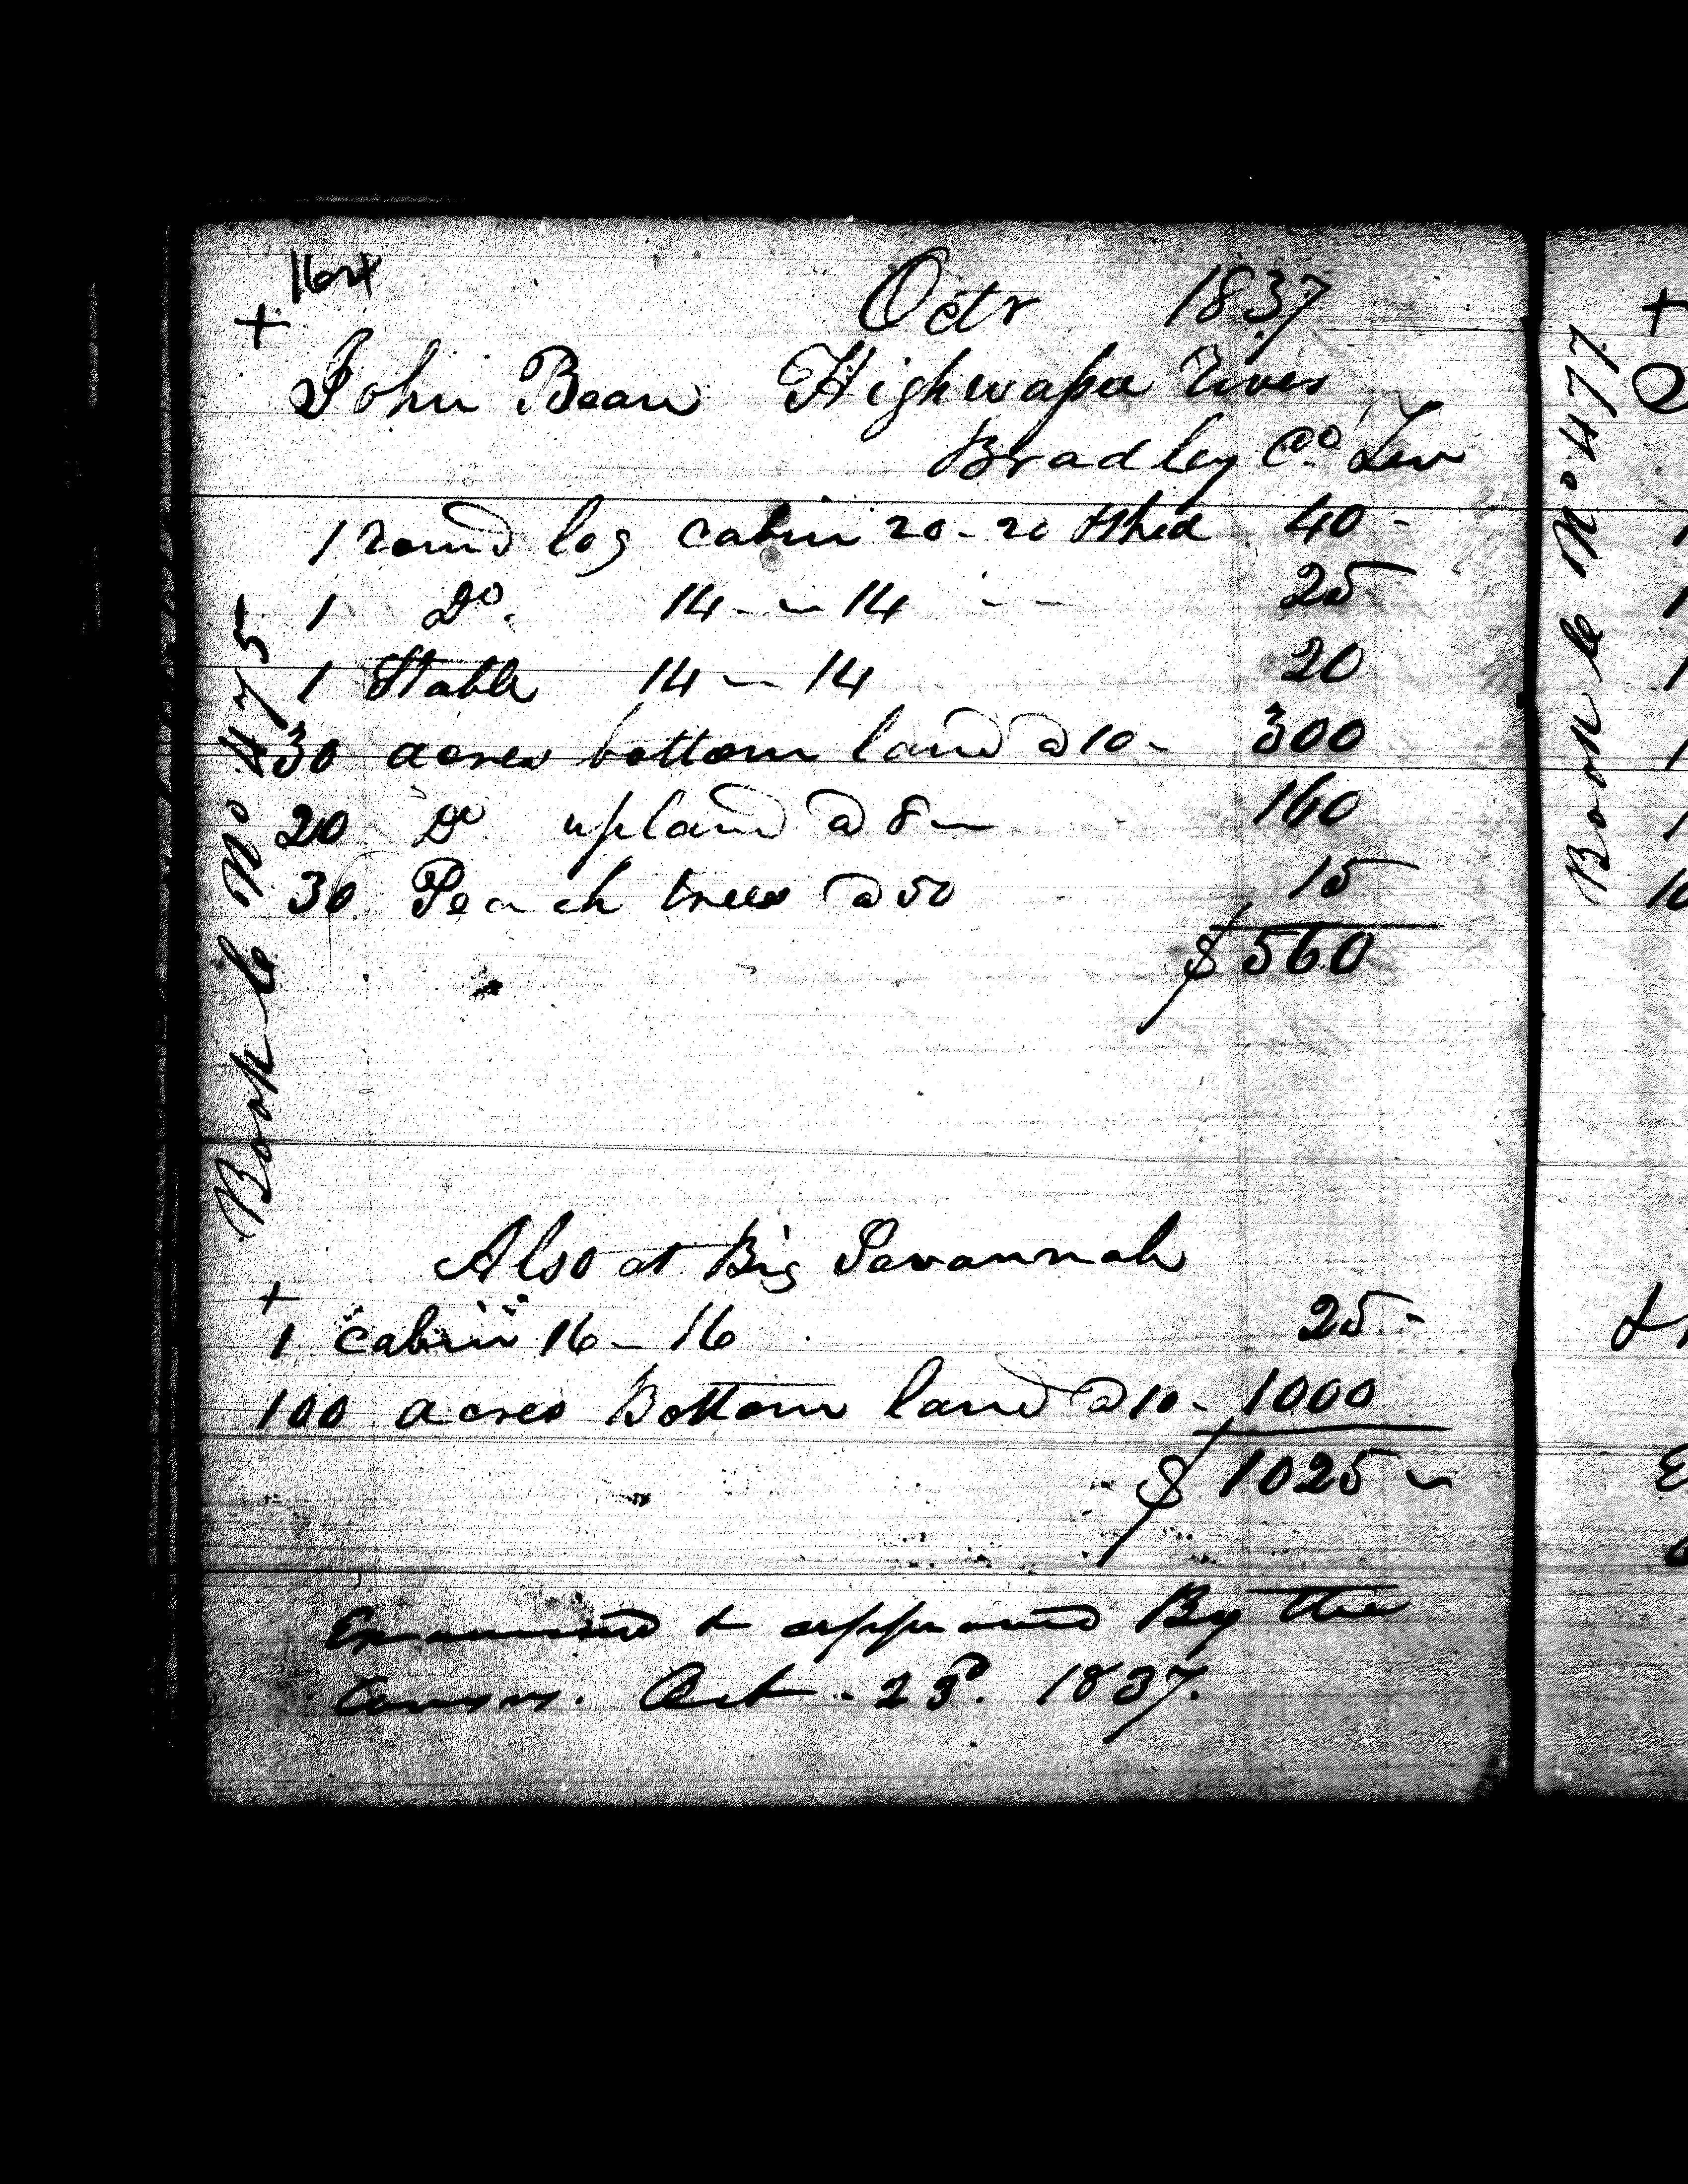 Octr 1837
John Bean Highwapee River
Bradley Co. Ten
1 round log cabin 20-20 & Shed 40-
1 Do. 14-14 25
1 Stable 14-14 20
30 acres bottom land @ 10- 300
20 Do upland @ 8- 160
30 Peach trees @ 50 15
$560
Also at Big Savannah
+
1 cabin 16-16 25-
100 acres Bottom land @ 10- 1000
$1025-
Examined & approved By the
Comrs. Oct. 23d. 1837.
Book le No 475
Book le No 477